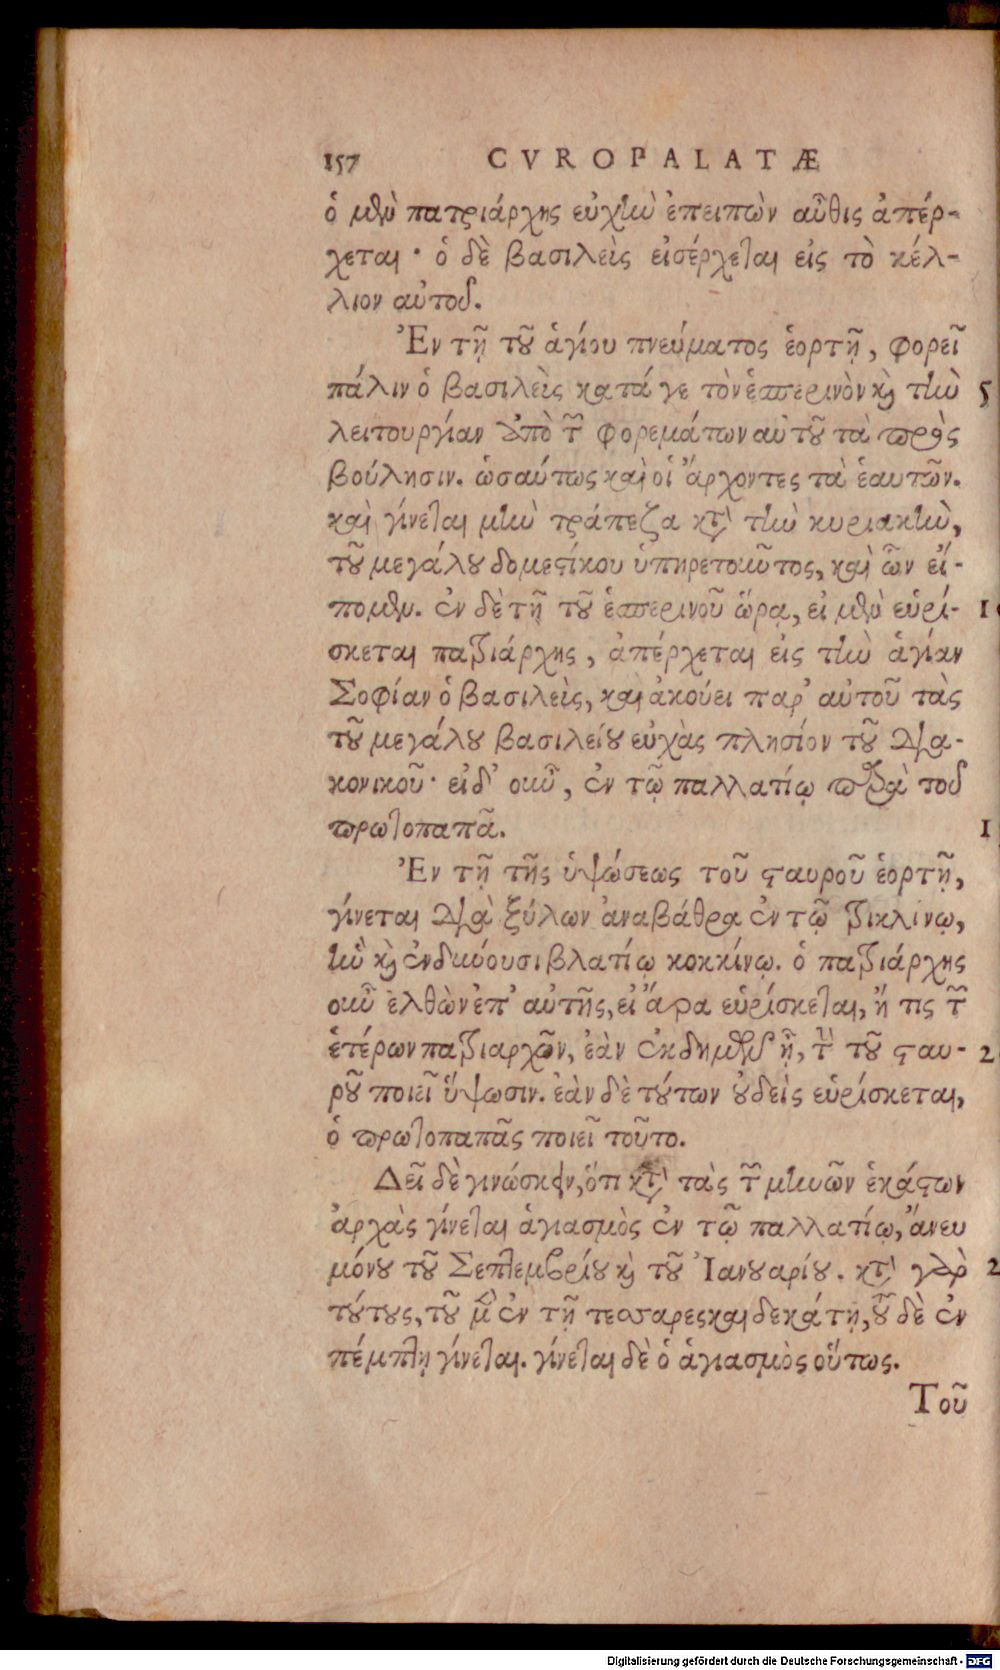 157 CVROPALATÆ
ὁ μὲν πατριάρχης εὐχὴν ἐπειπὼν αὖθις ἀπέρ-
χεται· ὁ δὲ βασιλεὺς εἰσέρχεται εἰς τὸ κέλ-
λιον αὐτοῦ.
Ἐν τῇ τοῦ ἁγίου πνεύματος ἑορτῇ, φορεῖ
πάλιν ὁ βασιλεὺς κατά γε τὸν ἑσπερινὸν καὶ τὴν 5
λειτουργίαν ἀπὸ τῶν φορεμάτων αὐτοῦ τὰ πρὸς
βούλησιν. ὡσαύτως καὶ οἱ ἄρχοντες τὰ ἑαυτῶν.
καὶ γίνεται μὴν τράπεζα κατὰ τὴν κυριακὴν,
τοῦ μεγάλου δομεστίκου ὑπηρετοῦντος, καὶ ὧν εἴ-
πομεν. ἐν δὲ τῇ τοῦ ἑσπερινοῦ ὥρᾳ, εἰ μὲν εὑρί- 1
σκεται πατριάρχης, ἀπέρχεται εἰς τὴν ἁγίαν
Σοφίαν ὁ βασιλεὺς, καὶ ἀκούει παρ' αὐτοῦ τὰς
τοῦ μεγάλου βασιλείου εὐχὰς πλησίον τοῦ δια-
κονικοῦ· εἰ δ' οὖν, ἐν τῷ παλλατίῳ παρὰ τοῦ
πρωτοπαπᾶ. 1
Ἐν τῇ τῆς ὑψώσεως τοῦ σταυροῦ ἑορτῇ,
γίνεται διὰ ξύλων ἀναβάθρα ἐν τῷ τρικλίνῳ,
ἣν καὶ ἐνδύουσι βλατίῳ κοκκίνῳ. ὁ πατριάρχης
οὖν ἐλθὼν ἐπ' αὐτῆς, εἰ ἄρα εὑρίσκεται, ἤ τις τῶν
ἑτέρων πατριαρχῶν, ἐὰν ἐκδημῶν ᾖ, τὴν τοῦ σταυ- 2
ροῦ ποιεῖ ὕψωσιν. ἐὰν δὲ τούτων οὐδεὶς εὑρίσκεται,
ὁ πρωτοπαπᾶς ποιεῖ τοῦτο.
Δεῖ δὲ γινώσκειν, ὅτι κατὰ τὰς τῶν μηνῶν ἑκάστων
ἀρχὰς γίνεται ἁγιασμὸς ἐν τῷ παλλατίῳ, ἄνευ
μόνου τοῦ Σεπτεμβρίου καὶ τοῦ Ἰανουαρίου. κατὰ γὰρ 2
τούτους, τοῦ μὲν ἐν τῇ τεσσαρεσκαιδεκάτῃ, τοῦ δὲ ἐν
πέμπτῃ γίνεται. γίνεται δὲ ὁ ἁγιασμὸς οὕτως.
Τοῦ
Digitalisierung gefördert durch die Deutsche Forschungsgemeinschaft - DFG